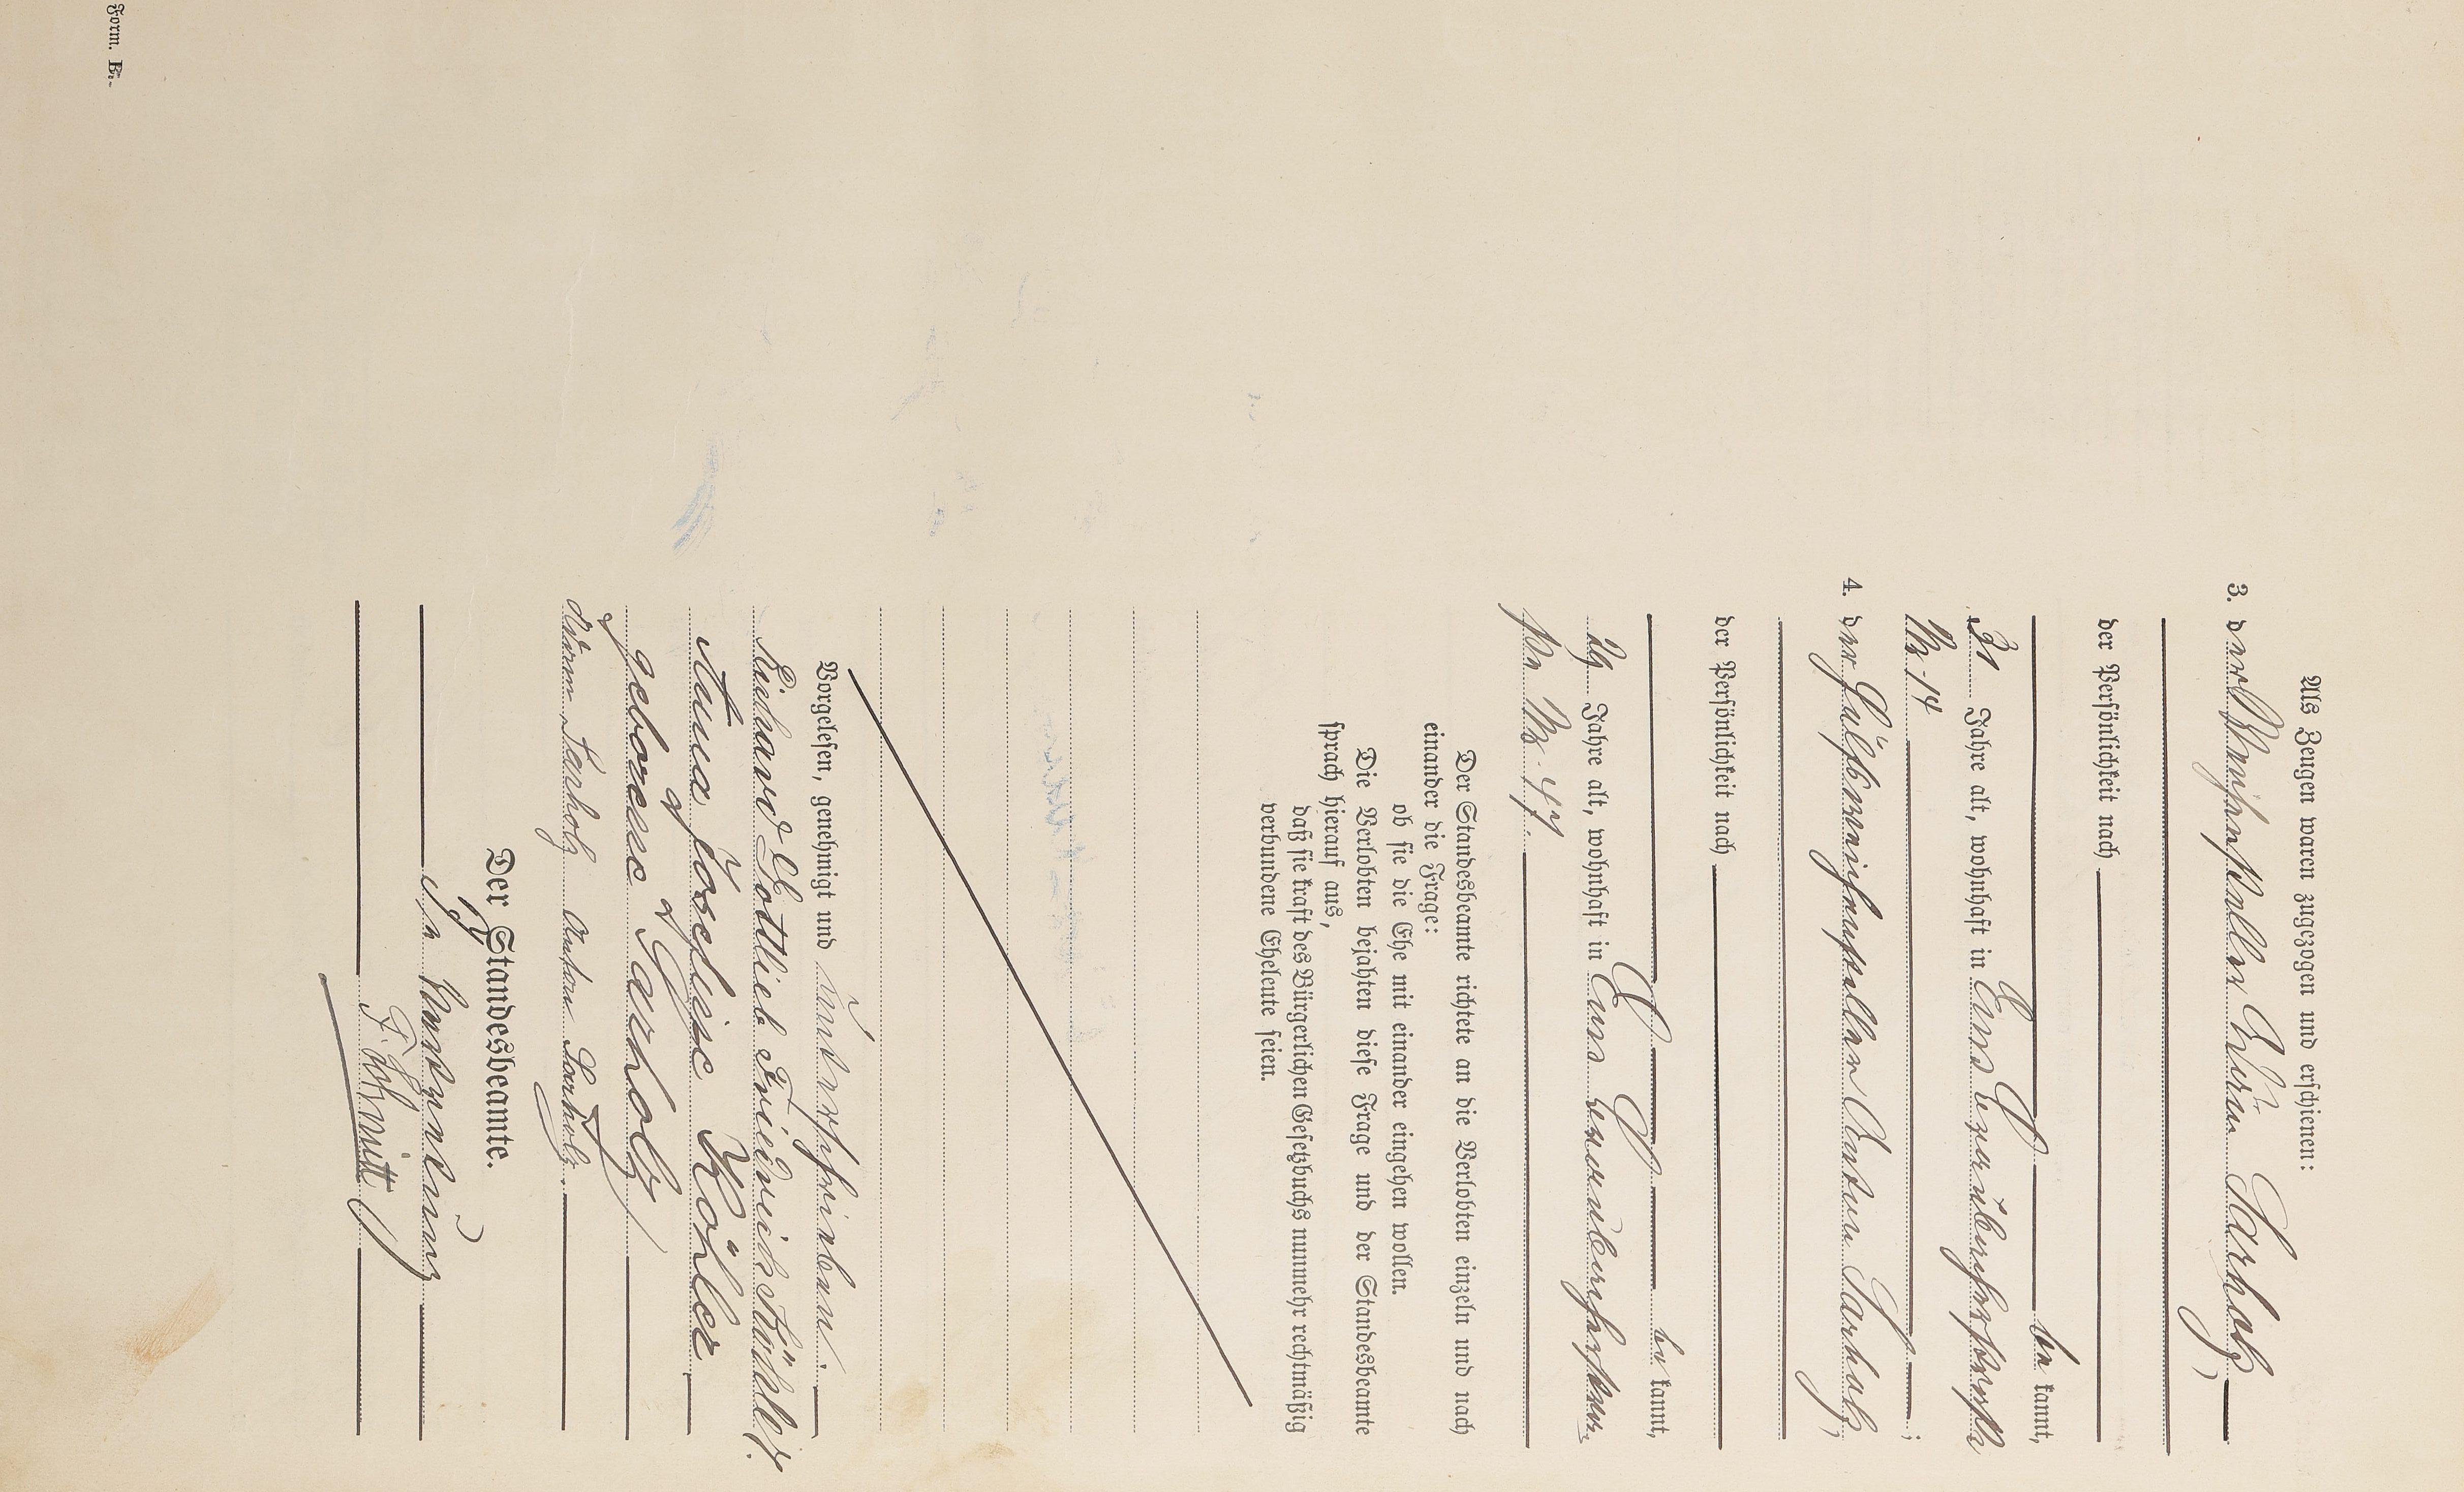 Als Zeugen waren zugezogen und erschienen:
3. der Brün Sarholz,
der Persönlichkeit nach
be kannt,
31 Jahre alt, wohnhaft in
No 14 ;
4. der Hülfsweichensteller Anton Sarholz,
der Persönlichkeit nach
be kannt,
29 Jahre alt, wohnhaft in
No 47.
Der Standesbeamte richtete an die Verlobten einzeln und nach
einander die Frage:
ob sie die Ehe mit einander eingehen wollen.
Die Verlobten bejahten diese Frage und der Standesbeamte
sprach hierauf aus,
daß sie kraft des Bürgerlichen Gesetzbuchs nunmehr rechtmäßig
verbundene Eheleute seien.
Vorgelesen, genehmigt und unterschrieben.
Richard Gottlieb Friedrich Köhler.
Anna Josefine Köhler
geborene Sarholz
Sarholz Anton Sarholz.
Der Standesbeamte.
In Vertretung